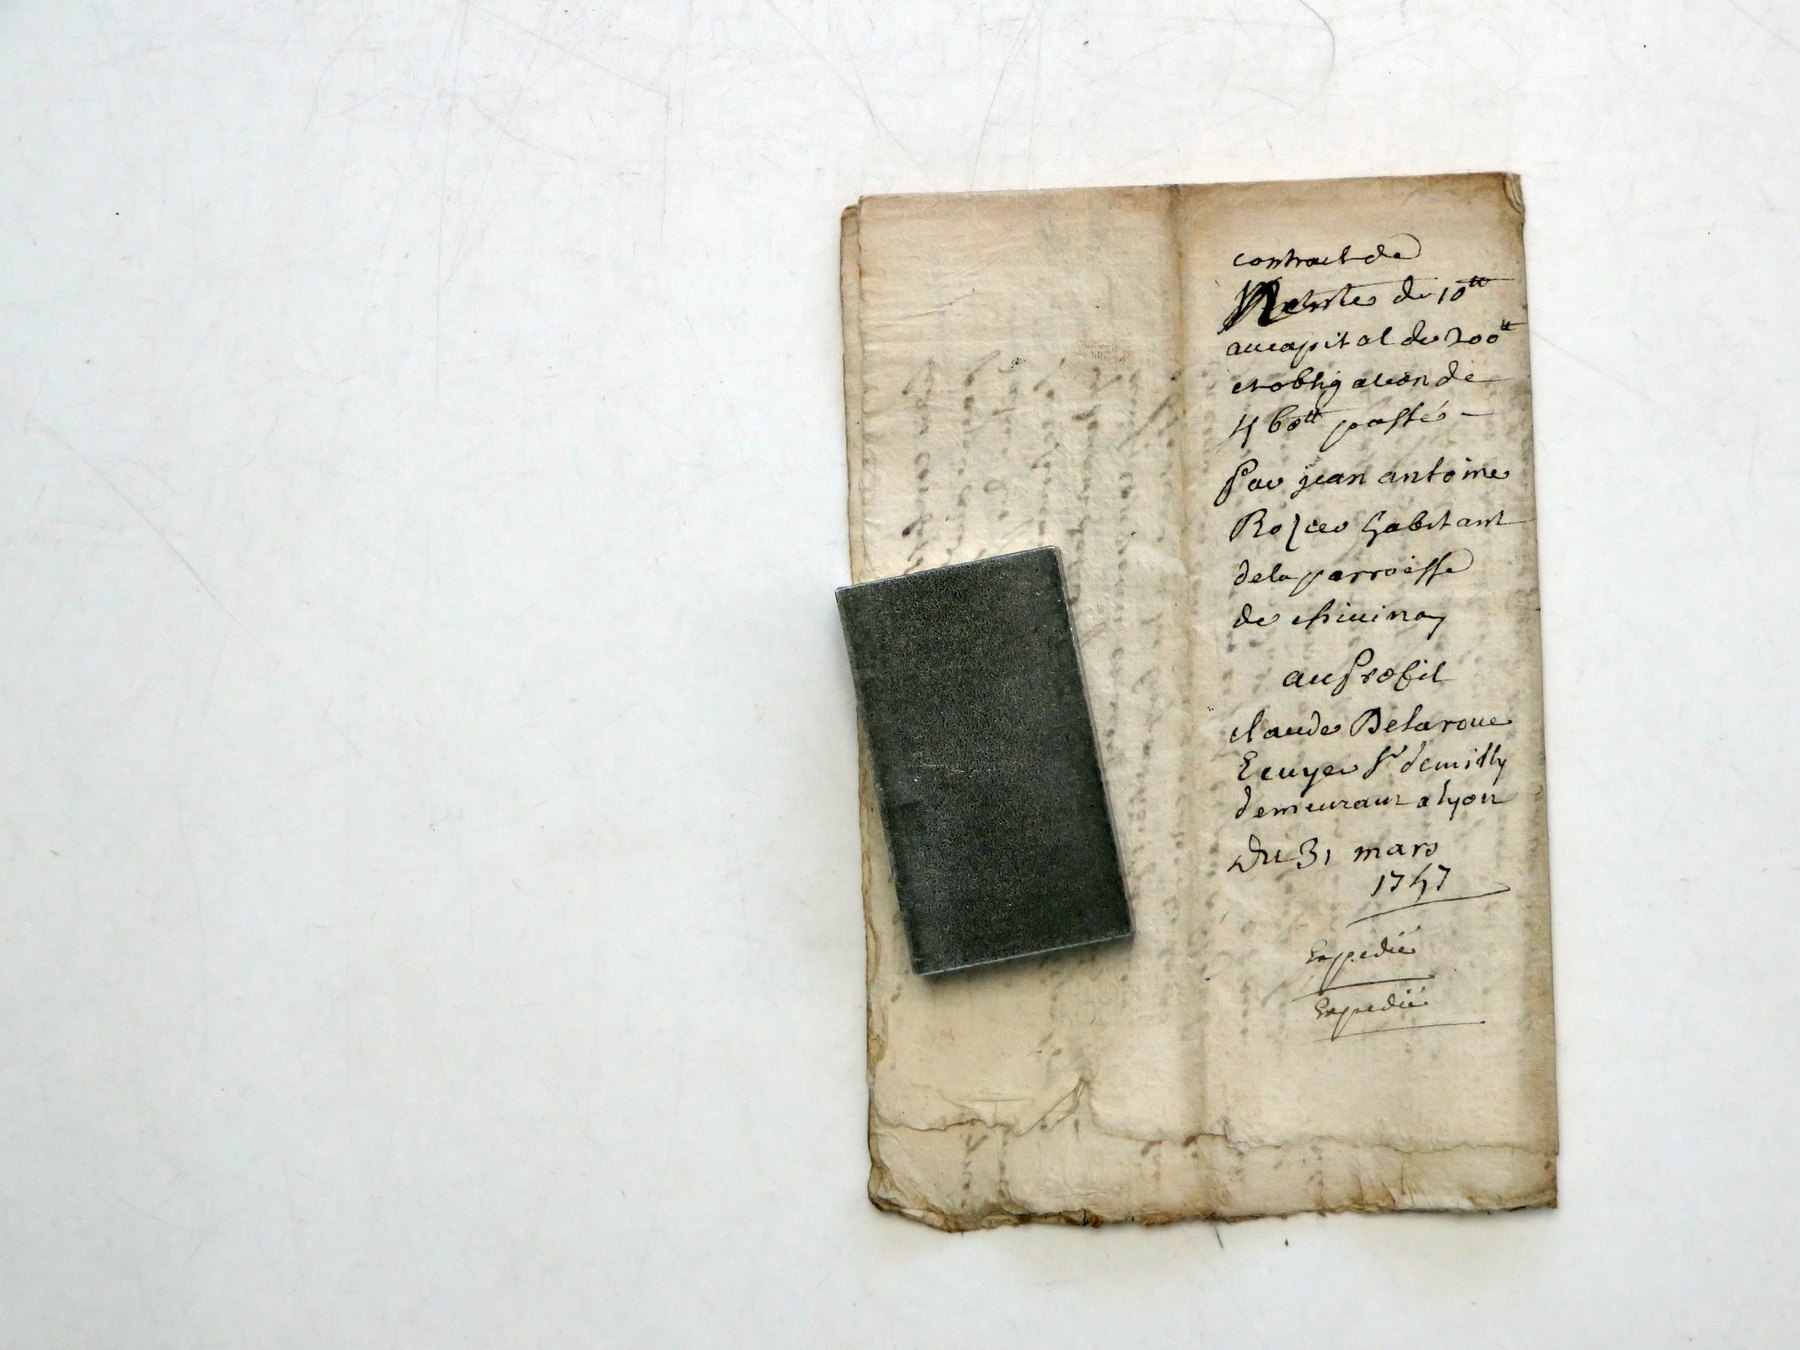 contract de
Rente de 10ᵗᵗ
au capital de 200ᵗᵗ
et obligation de
460ᵗᵗ passée
Par jean antoine
Rozier habitant
de la parroisse
de chivinay
au Profit
claude Delaroue
Ecuyer Sʳ demilly
demeurant a lyon
Du 31 mars
1747
Expedié
Expedié